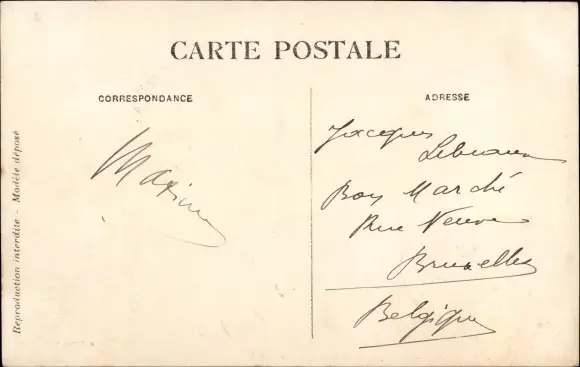 CARTE POSTALE
CORRESPONDANCE
ADRESSE
Reproduction interdite - Modèle déposé
Jacques
Bon Marché
Rue Neuve
Bruxelles
Belgique